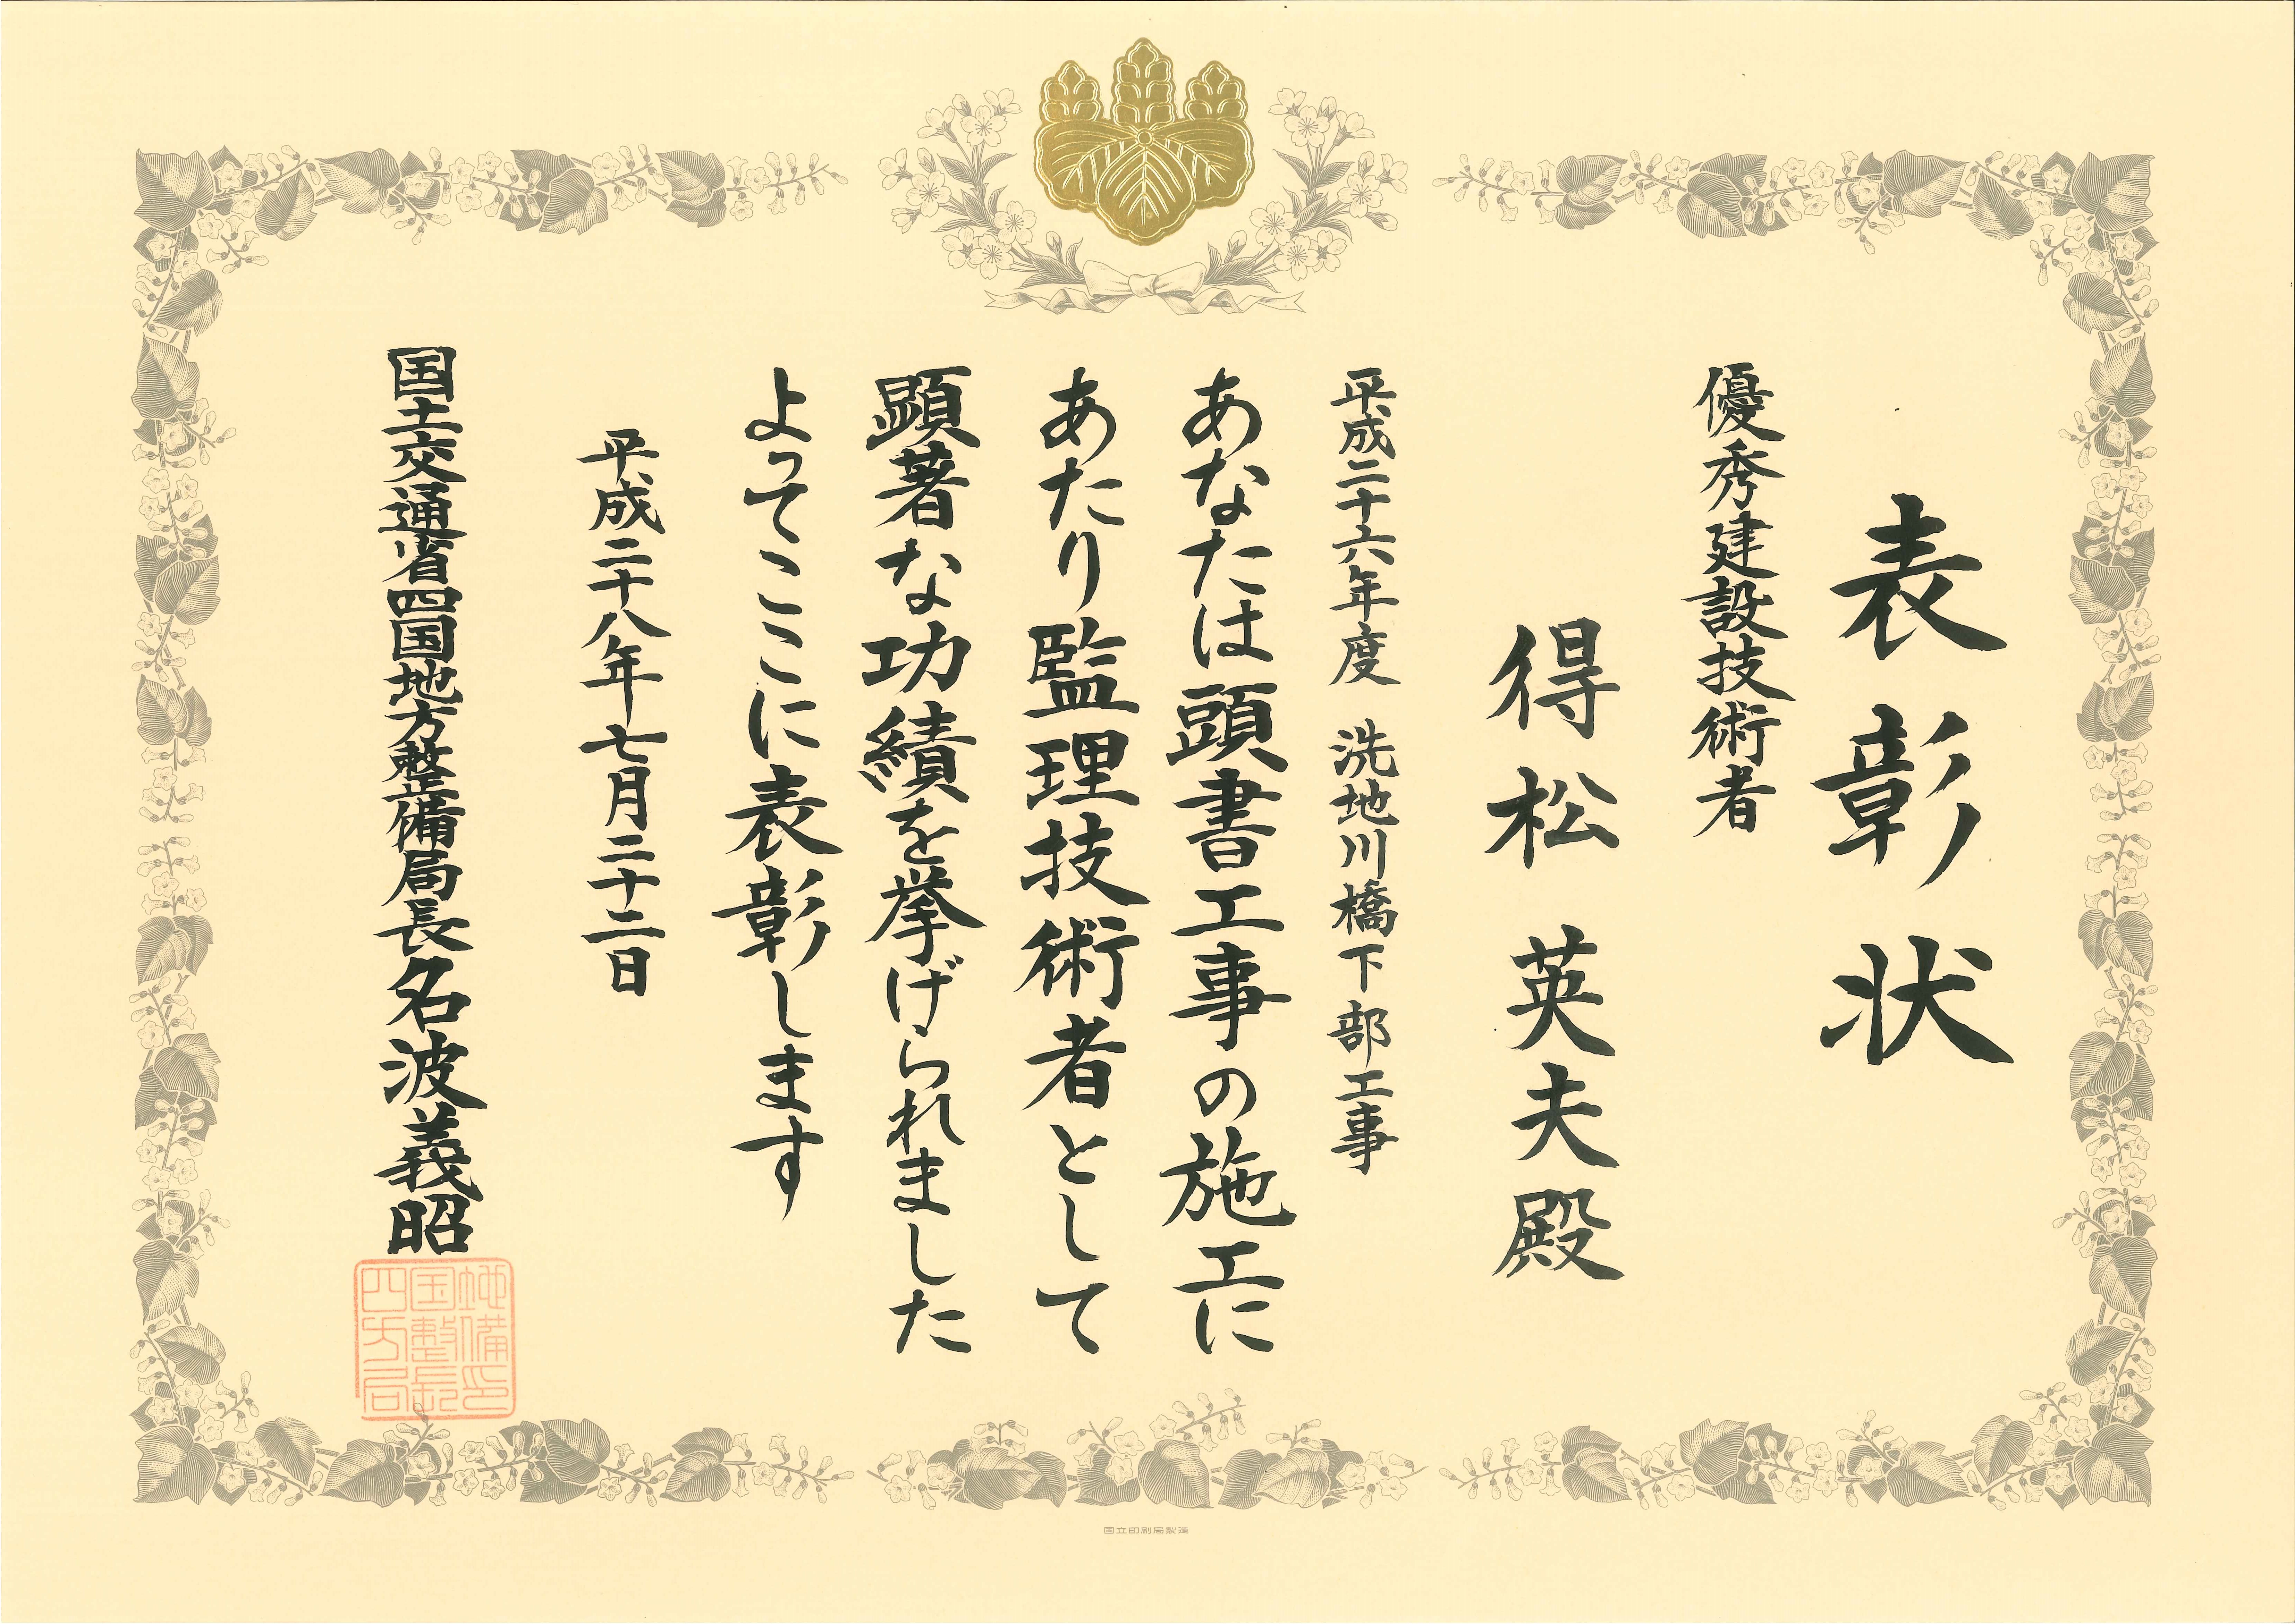 表彰状
優秀建設技術者
得松英夫殿
平成二十六年度　洗地川橋下部工事
あなたは頭書工事の施工に
あたり監理技術者として
顕著な功績を挙げられました
よってここに表彰します
平成二十八年七月二十二日
国土交通省四国地方整備局長名波義昭
四国地
方整備
局長印
国立印刷局製造